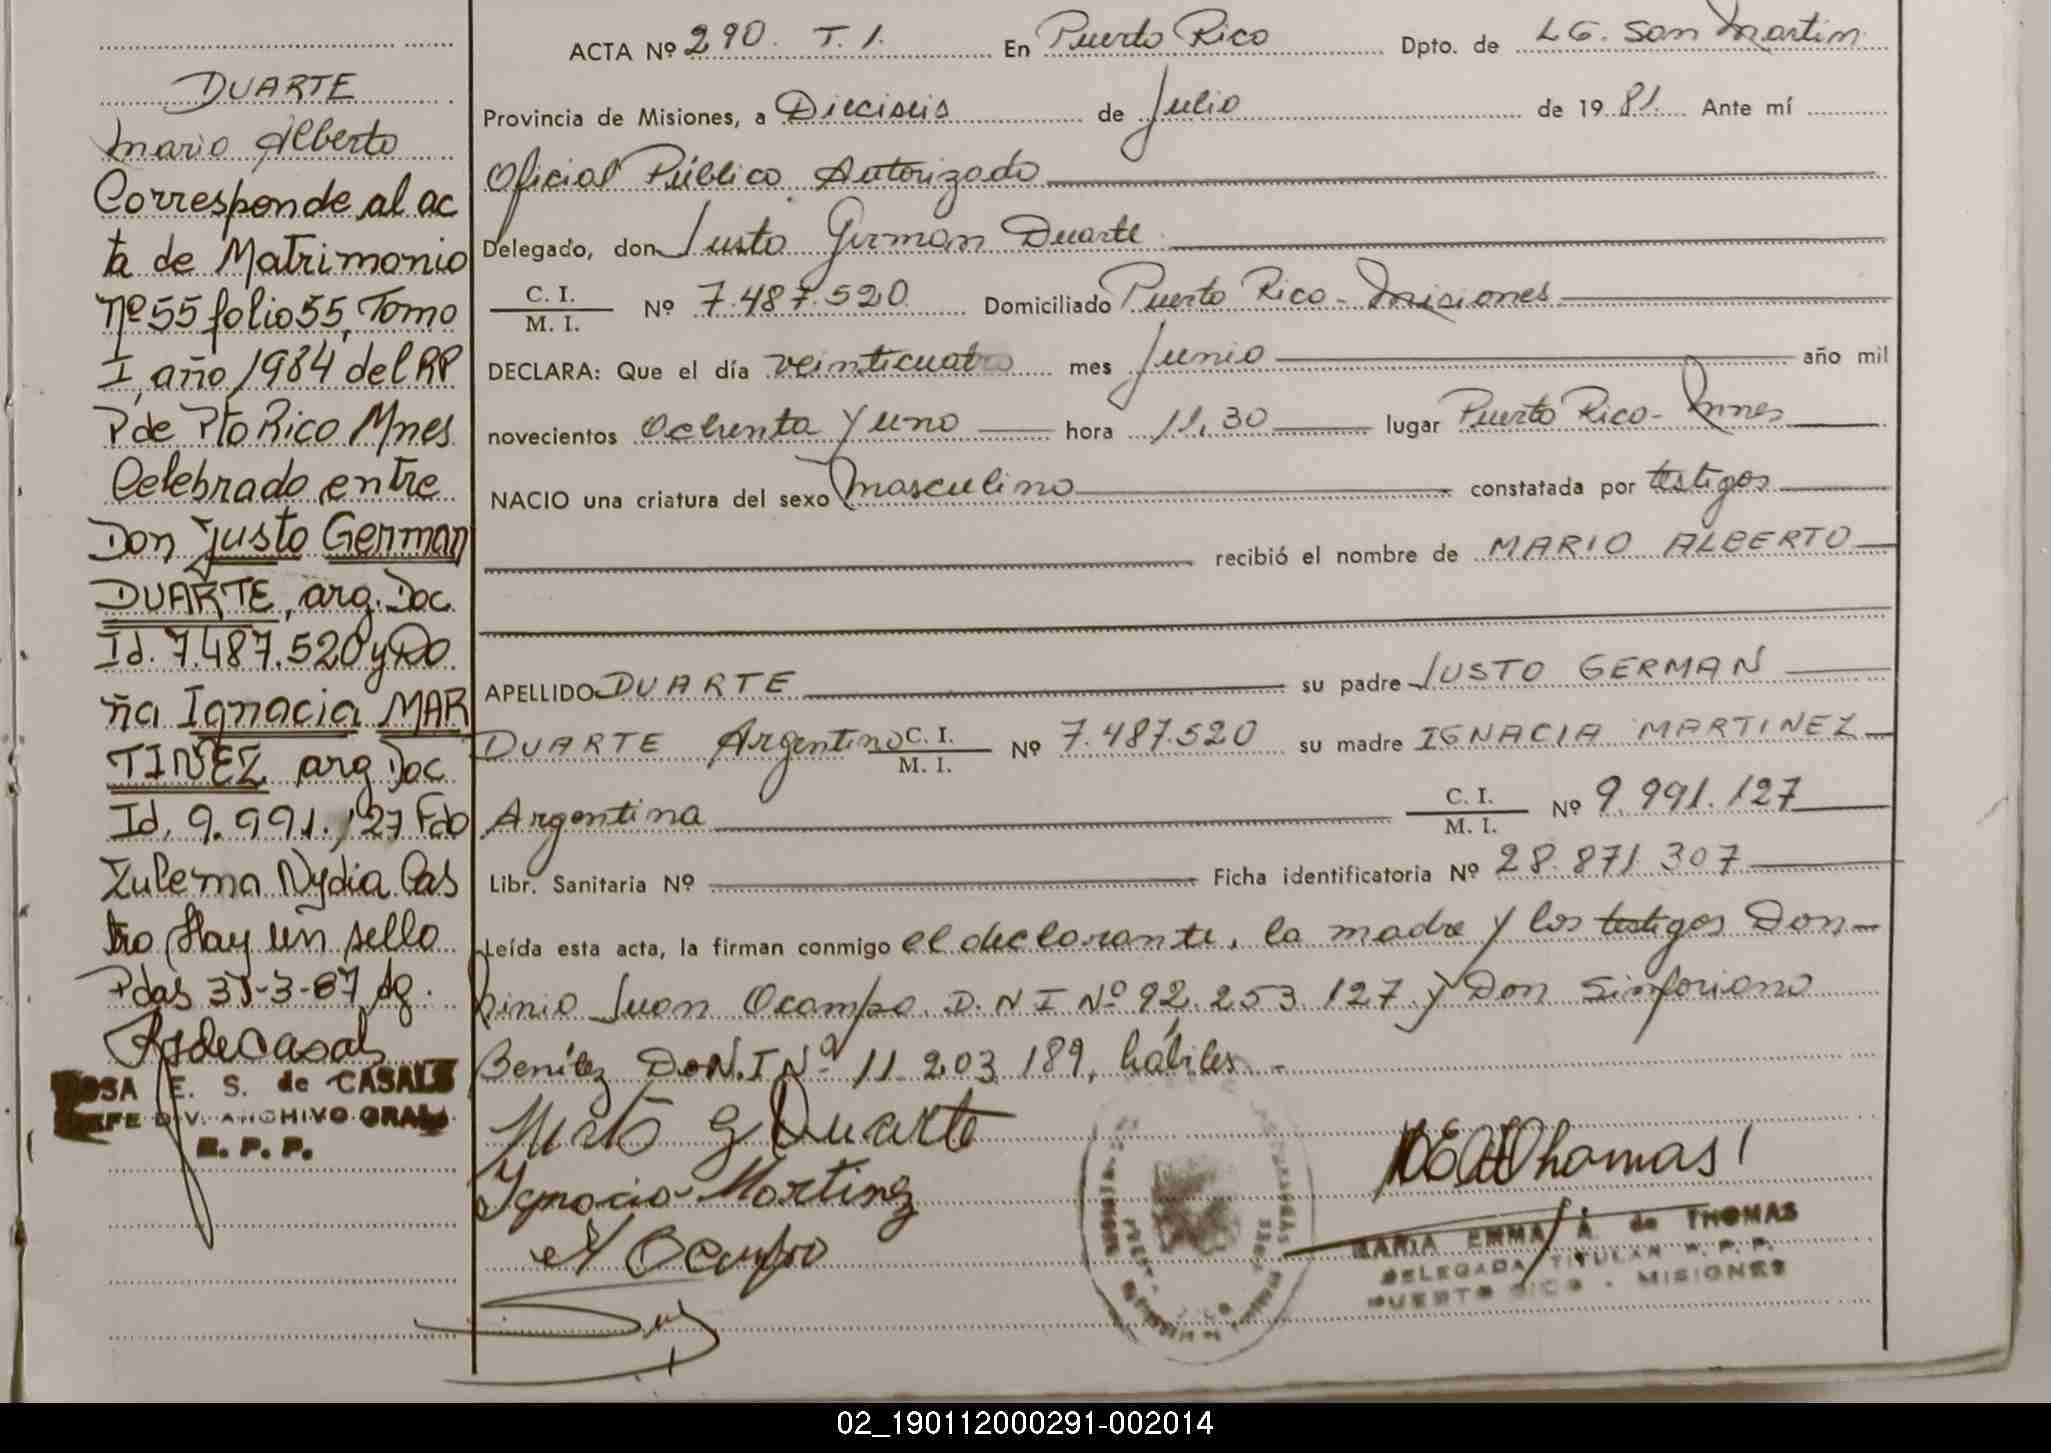 DUARTE
Mario Alberto
Corresponde al ac
ta de Matrimonio
Nº 55 folio 55, Tomo
I, año 1984 del RP
P de Pto Rico Mnes
Celebrado entre
Don Justo German
DUARTE, arg. Doc
Id. 7.487.520 y Do
ña Ignacia MAR
TINEZ arg Doc
Id. 9.991.127 Fdo
Zulema Nydia Cas
tro Hay un sello
Pdas 31-3-87 dg.
RSdeCasals
ROSA E. S. de CASALS
JEFE DIV. ARCHIVO GRAL.
R. P. P.
ACTA Nº 290. T. 1. En Puerto Rico Dpto. de LG. San Martin
Provincia de Misiones, a Dieciseis de Julio de 1981. Ante mí
Oficial Público Autorizado
Delegado, don Justo German Duarte
C. I.
M. I. Nº 7.487.520 Domiciliado Puerto Rico - Misiones
DECLARA: Que el día veinticuatro mes Junio año mil
novecientos Ochenta y uno hora 11,30 lugar Puerto Rico - Mnes
NACIO una criatura del sexo Masculino constatada por testigos
recibió el nombre de MARIO ALBERTO
APELLIDO DUARTE su padre JUSTO GERMAN
DUARTE Argentino C. I.
M. I. Nº 7.487.520 su madre IGNACIA MARTINEZ
Argentina C. I.
M. I. Nº 9.991.127
Libr. Sanitaria Nº Ficha identificatoria Nº 28.871.307
Leída esta acta, la firman conmigo el declarante, la madre y los testigos Don
Juan Ocampo D.N I Nº 92.253.127 y Don Sinforiano
Benítez D.N.I Nº 11.203.189, hábiles.-
Justo G Duarte
Ignacia Martinez
Ocampo
MARIA EMMA A. de THOMAS
DELEGADA TITULAR R. P. P.
PUERTO RICO - MISIONES
02_190112000291-002014